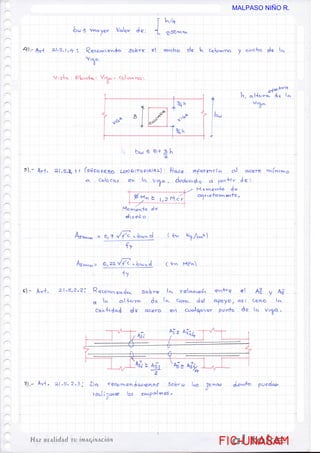 MALPASO NIÑO R.
h/4
bw ≥ mayor Valor de: 250mm
4).- Art. 21.5.1.4: Recomienda sobre el ancho de la Columna y ancho de la
Viga.
Vista Planta: Viga - Columna:
h, altura de la
Viga
VIGA
B
COLUMNA
VIGA
bw
3/4 h
3/4 h
bw ≤ B + 3/2 h
5).- Art. 21.5.2.1: (REFUERZO LONGITUDINAL) Hace referencia al acero mínimo
a Colocar en la viga, deducido a partir de:
Momento de
agrietamiento.
ø Mn ≥ 1,2 Mcr
Momento de
diseño
Asmin = 0,7 √f'c · bw·d / fy (en Kg/cm²)
Asmin = 0,22 √f'c · bw·d / fy (en MPa)
6).- Art. 21.5.2.2: Recomienda sobre la relación entre el As⁻ y As⁺
a la altura de la Cara del apoyo, así como la
Cantidad de acero en cualquier punto de la viga.
7).- Art. 21.5.2.3: Da recomendaciones sobre las zonas donde puedan
realizarse los empalmes.
Haz realidad tu imaginación
FIC-UNASAM